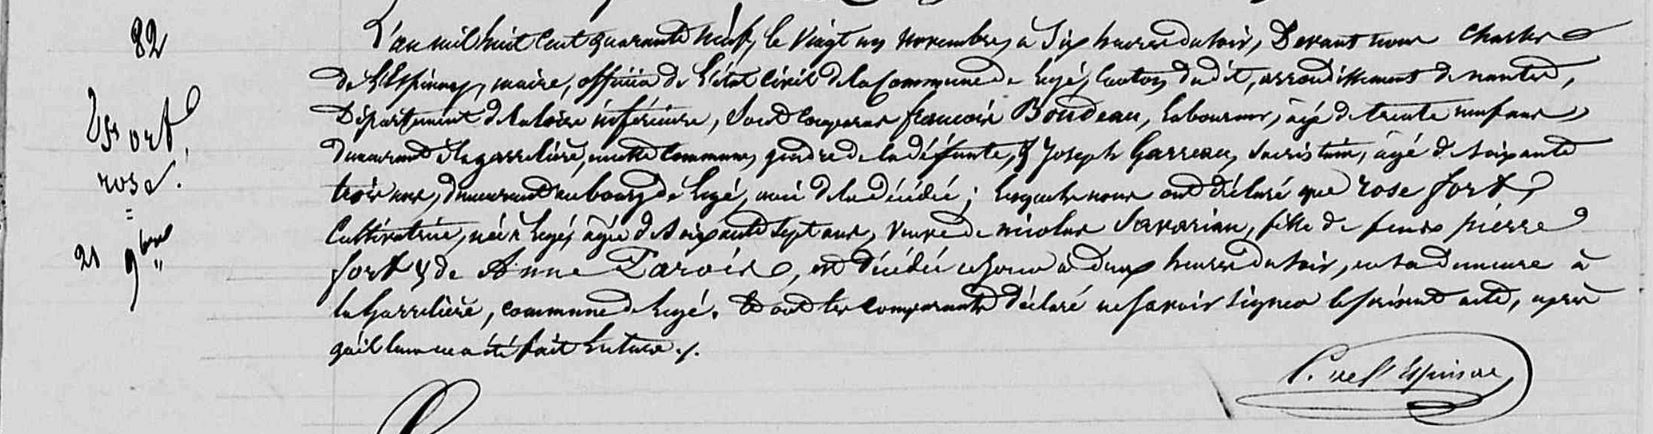 82
Fort,
rose.
21 9bre
L'an mil huit cent quarante neuf, le vingt un novembre, à six heures du soir, Devant nous Charles
de L'Espinay, maire, officier de l'état civil de la Commune de Legé, Canton dudit, arrondissement de nantes,
Département de la loire inférieure, sont comparus francois Boudeau, laboureur, âgé de trente neuf ans,
demeurant à la garrelière, en cette Commune, gendre de la défunte, & Joseph Garreau, Sacristain, âgé de soixante
trois ans, demeurant au bourg de Legé, ami de la décédée; lesquels nous ont déclaré que rose fort,
Cultivatrice, née à Legé, âgée de soixante sept ans, veuve de nicolas Savarian, fille de feus pierre
fort & de Anne Parois, est décédée ce jour à deux heures du soir, en sa demeure à
la Garrelière, commune de Legé. & ont les comparants déclaré ne savoir signer le présent acte, après
qu'il leur en a été fait lecture./.
C. de L'Espinay